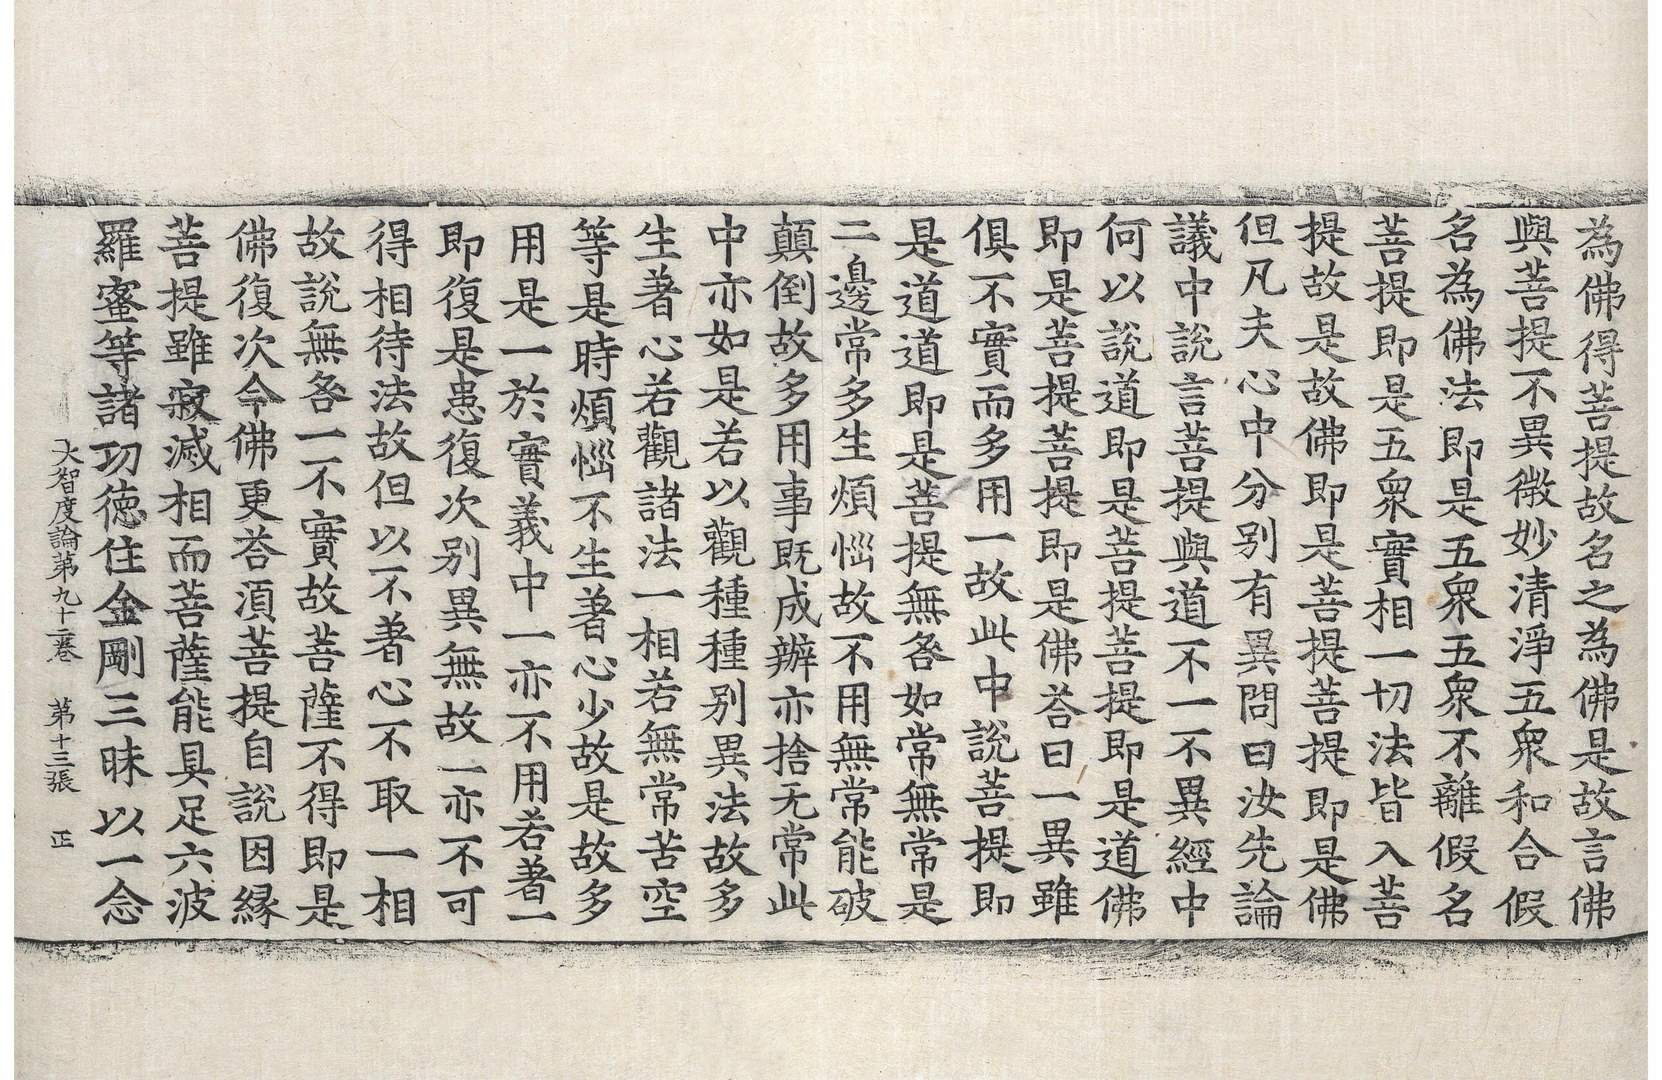 為佛得菩提故名之為佛是故言佛
與菩提不異微妙清淨五衆和合假
名為佛法即是五衆五衆不離假名
菩提即是五衆實相一切法皆入菩
提故是故佛即是菩提菩提即是佛
但凡夫心中分別有異問曰汝先論
議中說言菩提與道不一不異經中
何以說道即是菩提菩提即是道佛
即是菩提菩提即是佛荅曰一異雖
俱不實而多用一故此中說菩提即
是道道即是菩提無咎如常無常是
二邊常多生煩惱故不用無常能破
顛倒故多用事既成辦亦捨无常此
中亦如是若以觀種種別異法故多
生著心若觀諸法一相若無常苦空
等是時煩惱不生著心少故是故多
用是一於實義中一亦不用若著一
即復是患復次別異無故一亦不可
得相待法故但以不著心不取一相
故說無咎一不實故菩薩不得即是
佛復次今佛更荅湏菩提自說因緣
菩提雖寂滅相而菩薩能具足六波
羅蜜等諸功德住金剛三昧以一念
大智度論第九十二卷 第十三張 正